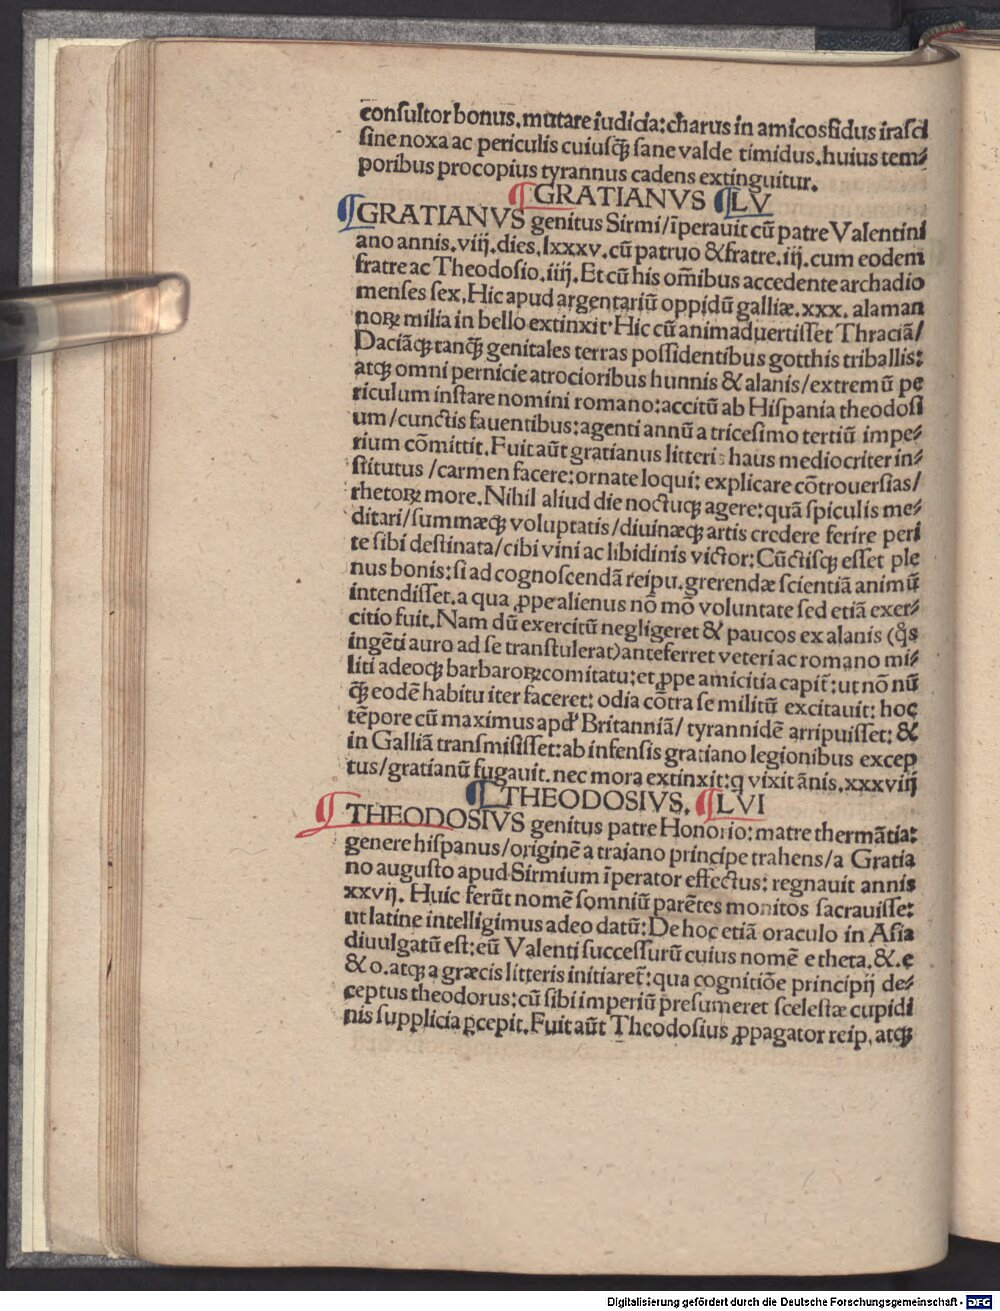 conſultor bonus. mutare iudicia: charus in amicos fidus iraſci
ſine noxa ac periculis cuiuſꝙ̃ ſane valde timidus. huius tem⸗
poribus procopius tyrannus cadens extinguitur.
¶GRATIANVS ¶LV
¶GRATIANVS genitus Sirmi/īperauit cū patre Valentini
ano annis. viij. dies. lxxxv. cū patruo & fratre. iij. cum eodem
fratre ac Theodoſio. iiij. Et cū his om̄ibus accedente archadio
menſes ſex. Hic apud argentariū oppidū galliæ. xxx. alaman
noꝝ milia in bello extinxit. Hic cū animaduertiſſet Thraciā/
Daciāqꝫ tanꝙ̃ genitales terras poſſidentibus gotthis triballis:
atqꝫ omni pernicie atrocioribus hunnis & alanis/extremū pe
riculum inſtare nomini romano: accitū ab Hiſpania theodoſi
um/cunctis fauentibus: agenti annū a triceſimo tertiū impe⸗
rium cōmittit. Fuit aūt gratianus litteris haus mediocriter in⸗
ſtitutus/carmen facere: ornate loqui: explicare cōtrouerſias/
rhetoꝝ more. Nihil aliud die noctuqꝫ agere: quā ſpiculis me⸗
ditari/ſummæqꝫ voluptatis/diuinæqꝫ artis credere ferire peri
te ſibi deſtinata/cibi vini ac libidinis victor: Cūctiſqꝫ eſſet ple
nus bonis: ſi ad cognoſcendā reipu. grerendæ ſcientiā animū
intendiſſet. a qua ꝓpe alienus nō mō voluntate ſed etiā exer⸗
citio fuit. Nam dū exercitū negligeret & paucos ex alanis (q̊s
ingēti auro ad ſe tranſtulerat) anteferret veteri ac romano mi⸗
liti adeoqꝫ barbaroꝝ comitatu: et ꝓpe amicitia capit̄: ut nō nū
ꝙ̃ eodē habitu iter faceret: odia cōtra ſe militū excitauit: hoc
tēpore cū maximus apd' Britanniā/tyrannidē arripuiſſet: &
in Galliā tranſmiſiſſet: ab infenſis gratiano legionibus excep
tus/gratianū fugauit. nec mora extinxit: q vixit ānis. xxxviij
¶THEODOSIVS. ¶LVI
¶THEODOSIVS genitus patre Honorio: matre thermātia:
genere hiſpanus/originē a traiano principe trahens/a Gratia
no auguſto apud Sirmium īperator effectus: regnauit annis
xxvij. Huic ferūt nomē ſomniū parētes monitos ſacrauiſſe:
ut latine intelligimus adeo datū: De hoc etiā oraculo in Aſia
diuulgatū eſt: eū Valenti ſucceſſurū cuius nomē e theta. &. e
& o. atqꝫ a græcis litteris initiaret̄: qua cognitiōe principij de⸗
ceptus theodorus: cū ſibi imperiū preſumeret ſceleſtæ cupidi
nis ſupplicia ꝑcepit. Fuit aūt Theodoſius ꝓpagator reip. atqꝫ
Digitalisierung gefördert durch die Deutsche Forschungsgemeinschaft - DFG